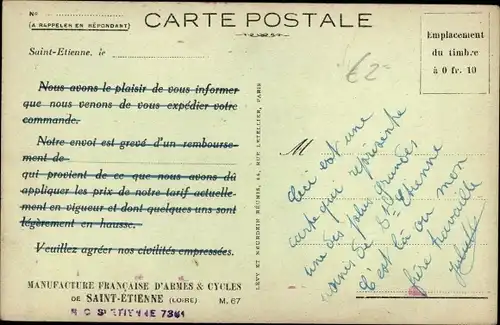 N°
CARTE POSTALE
(A RAPPELER EN RÉPONDANT)
Saint-Etienne, le
Emplacement
du timbre
à 0 fr. 10
€2-
Nous avons le plaisir de vous informer
que nous venons de vous expédier votre
commande.
Notre envoi est grevé d'un rembourse-
ment de
qui provient de ce que nous avons dû
appliquer les prix de notre tarif actuelle-
ment en vigueur et dont quelques uns sont
légèrement en hausse.
Veuillez agréer nos civilités empressées.
MANUFACTURE FRANÇAISE D'ARMES & CYCLES
DE SAINT-ÉTIENNE (LOIRE) M. 67
R C St ETIENNE 7361
LÉVY ET NEURDEIN RÉUNIS, 44, RUE LETELLIER, PARIS
M
Ceci est une
carte qui représente
une des plus grandes
usines de St Etienne
C'est là ou mon
frère travaille